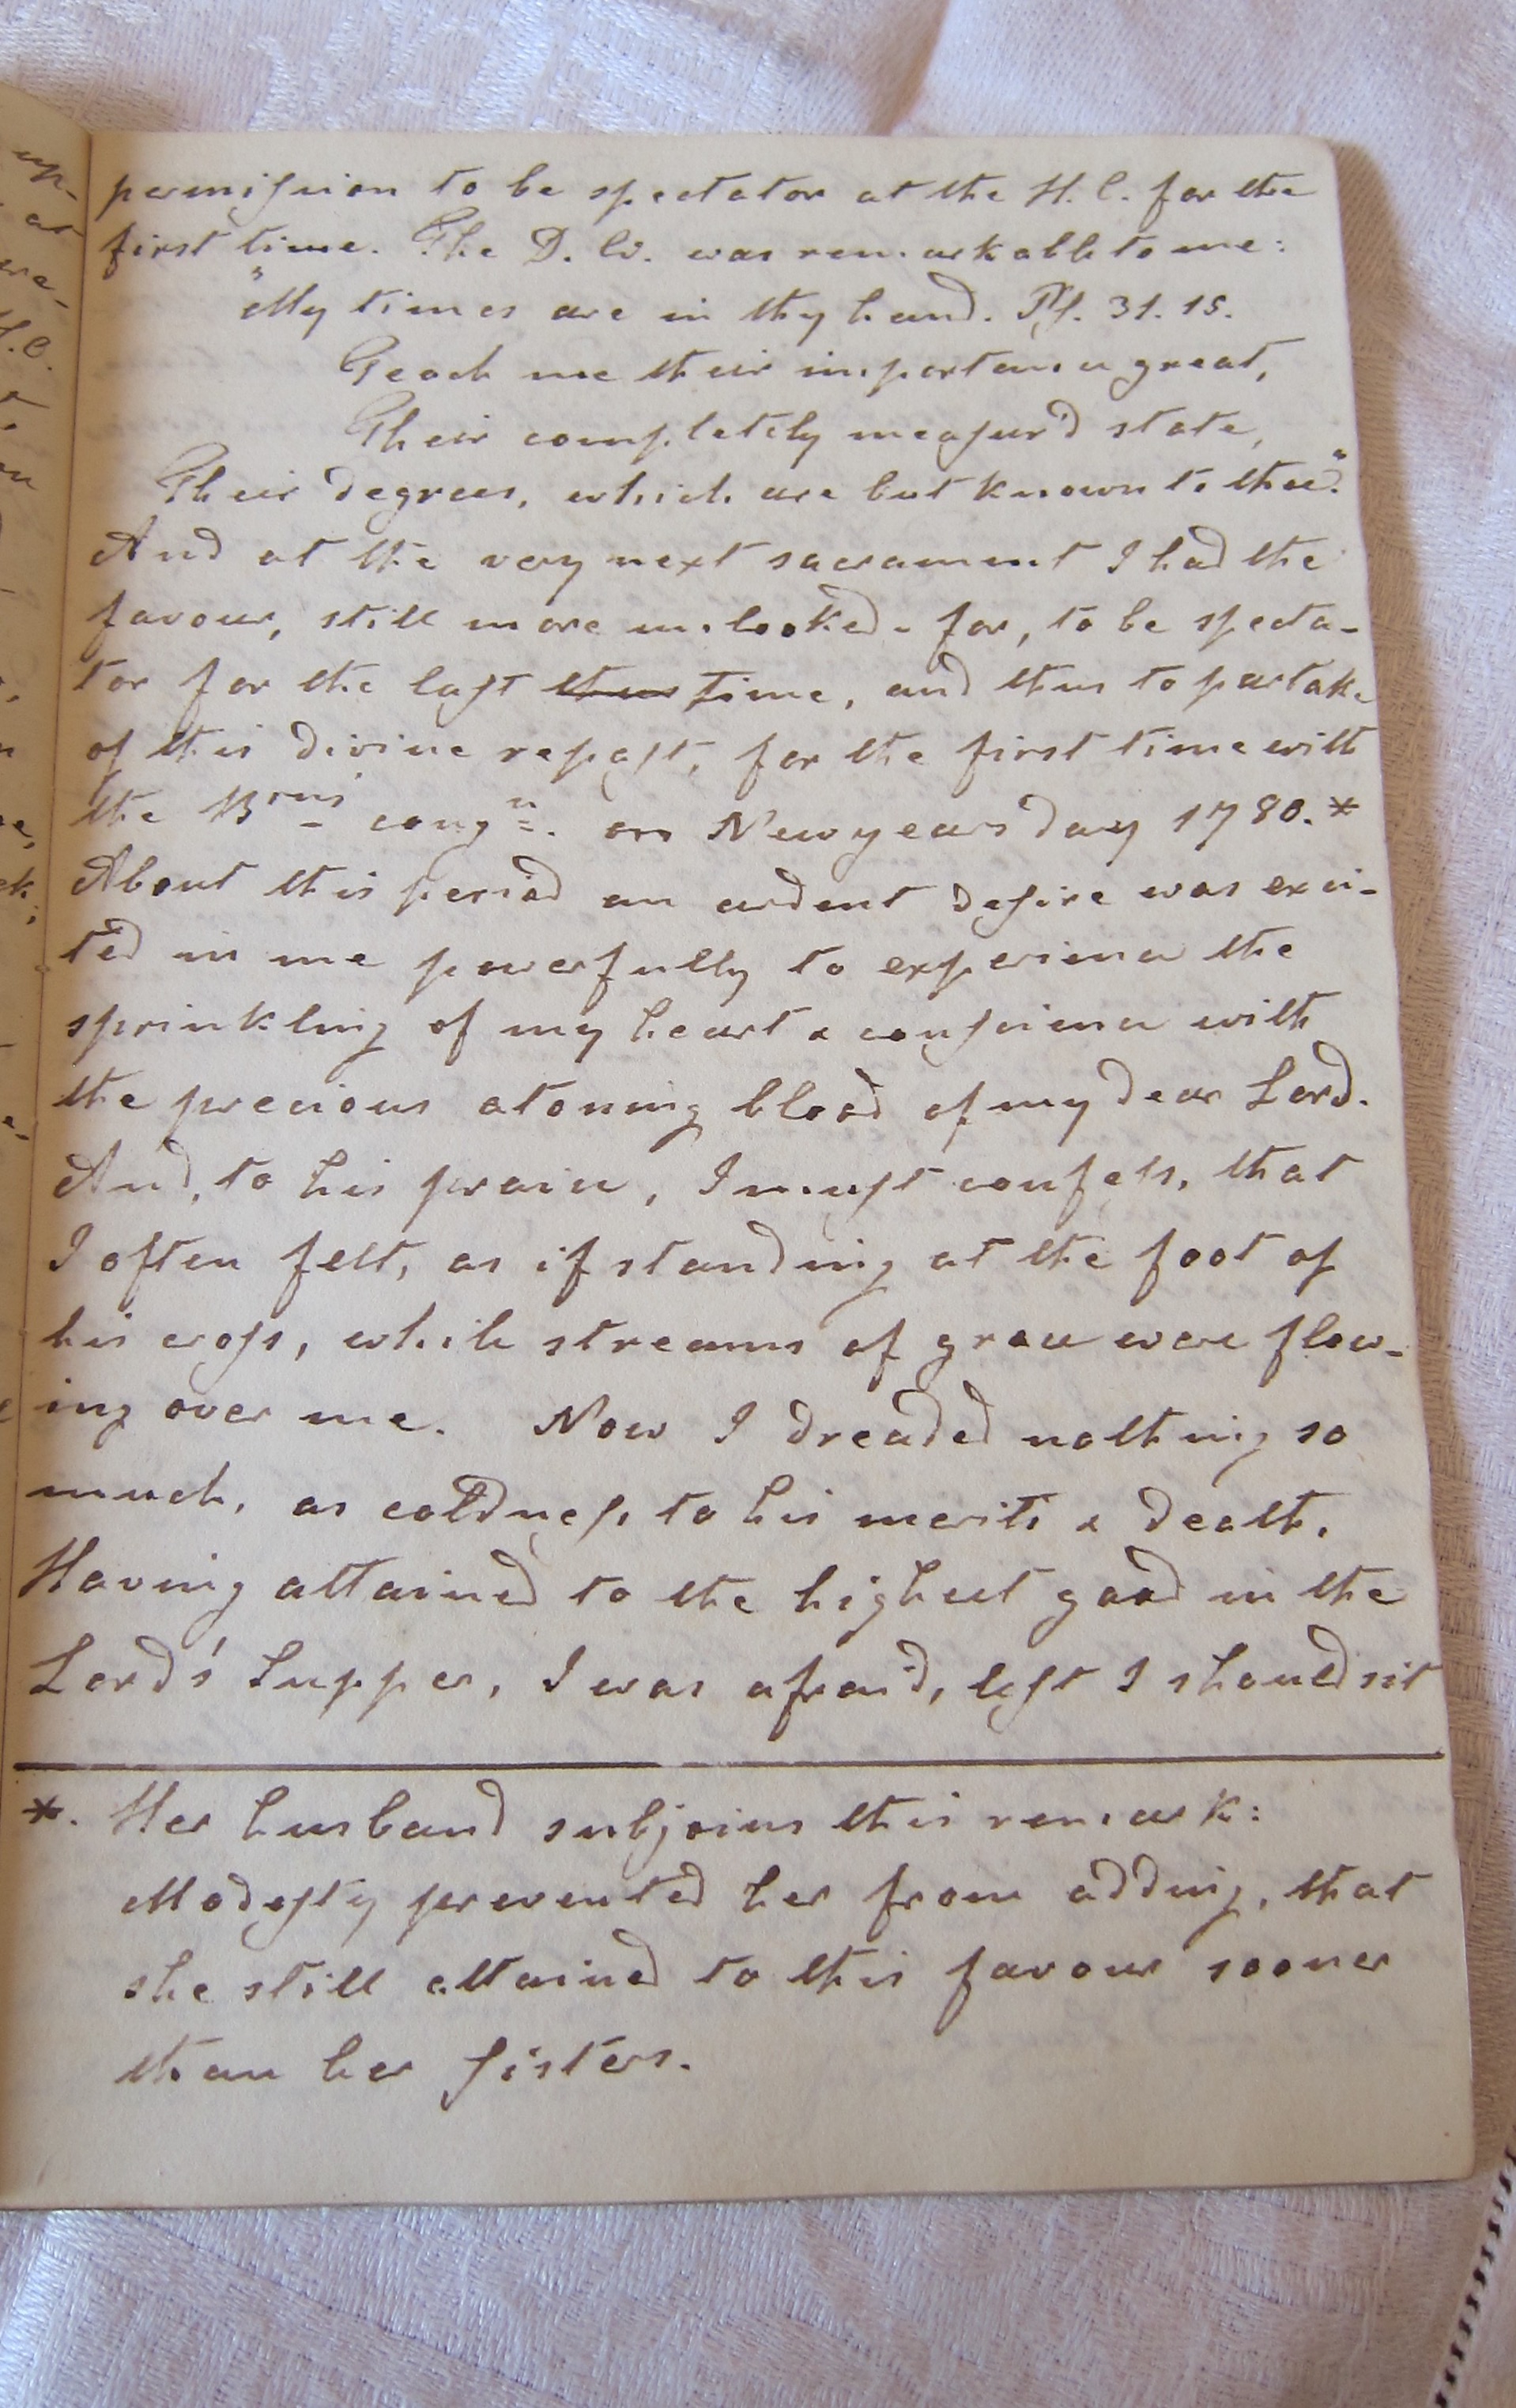 permission to be spectator at the H. C. for the
first time. The D. W. was remarkable to me:
"My times are in thy hand. Ps. 31. 15.
Teach me their importance great,
Their completely measur'd state,
Their degrees, which are but known to thee."
And at the very next sacrament I had the
favour, still more unlooked-for, to be specta-
tor for the last thus time, and thus to partake
of this divine repast, for the first time with
the Brns' congn. on Newyears day 1780.*
About this period an ardent desire was exci-
ted in me powerfully to experience the
sprinkling of my heart & conscience with
the precious atoning blood of my dear Lord.
And, to his praise, I must confess, that
I often felt, as if standing at the foot of
his cross, while streams of grace were flow-
ing over me. Now I dreaded nothing so
much, as coldness to his merits & death.
Having attained to the highest good in the
Lord's Supper, I was afraid, lest I should sit
*. Her husband subjoins this remark:
Modesty prevented her from adding, that
she still attained to this favour sooner
than her sisters.
up-
at
H.C.